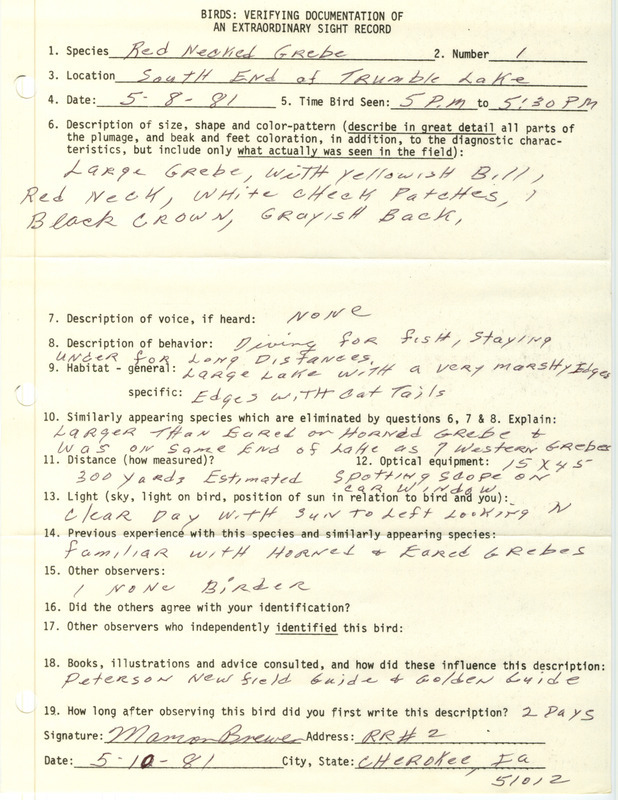 BIRDS: VERIFYING DOCUMENTATION OF
AN EXTRAORDINARY SIGHT RECORD
1. Species Red Necked Grebe 2. Number 1
3. Location South End of Trumble Lake
4. Date: 5-8-81 5. Time Bird Seen: 5 P.M to 5:30 PM
6. Description of size, shape and color-pattern (describe in great detail all parts of
the plumage, and beak and feet coloration, in addition, to the diagnostic charac-
teristics, but include only what actually was seen in the field):
Large Grebe, with yellowish Bill,
Red Neck, White Check Patches,
Black Crown, Grayish Back,
7. Description of voice, if heard: None
8. Description of behavior: Diving for fish, staying
under for Long Distances.
9. Habitat - general: Large Lake with a very marshy Edges
specific: Edges with Cat Tails
10. Similarly appearing species which are eliminated by questions 6, 7 & 8. Explain:
Larger Than Eared or Horned Grebe &
was on same End of Lake as 7 Western Grebes
11. Distance (how measured)? 12. Optical equipment: 15 X 45
300 yards Estimated Spotting Scope on
car window
13. Light (sky, light on bird, position of sun in relation to bird and you):
Clear Day with Sun To Left Looking N
14. Previous experience with this species and similarly appearing species:
familiar with Horned & Eared Grebes
15. Other observers:
1 None Birder
16. Did the others agree with your identification?
17. Other observers who independently identified this bird:
18. Books, illustrations and advice consulted, and how did these influence this description:
Peterson New field Guide & Golden Guide
19. How long after observing this bird did you first write this description? 2 Days
Signature: Marion Brewer Address: RR# 2
Date: 5-10-81 City, State: Cherokee, Ia
51012